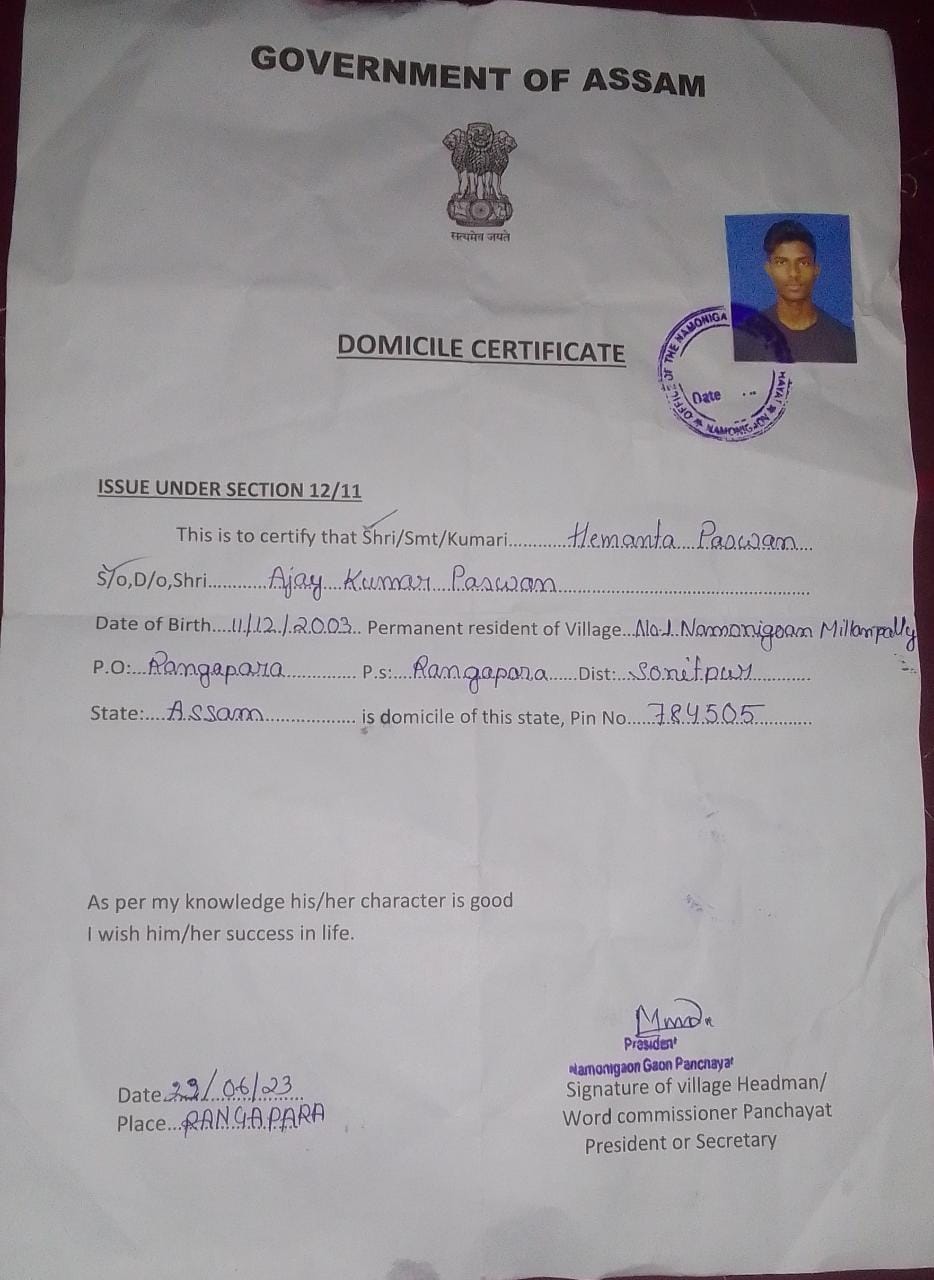 GOVERNMENT OF ASSAM
सत्यमेव जयते
DOMICILE CERTIFICATE
OFFICE OF THE NAMONIGA
Date
NAMONIGAON
ISSUE UNDER SECTION 12/11
This is to certify that Shri/Smt/Kumari............Hemanta Paswan....
S/o,D/o,Shri............Ajay Kumar Paswan............
Date of Birth....11/12/2003.. Permanent resident of Village...No-1 Namonigoan Milanpally
P.O:...Rangapara............ P.s:....Rangapara......Dist:..Sonitpur............
State:....Assam.................. is domicile of this state, Pin No.....784505............
As per my knowledge his/her character is good
I wish him/her success in life.
President
Namonigaon Gaon Panchayat
Date 23/06/23
Signature of village Headman/
Place...RANGAPARA
Word commissioner Panchayat
President or Secretary